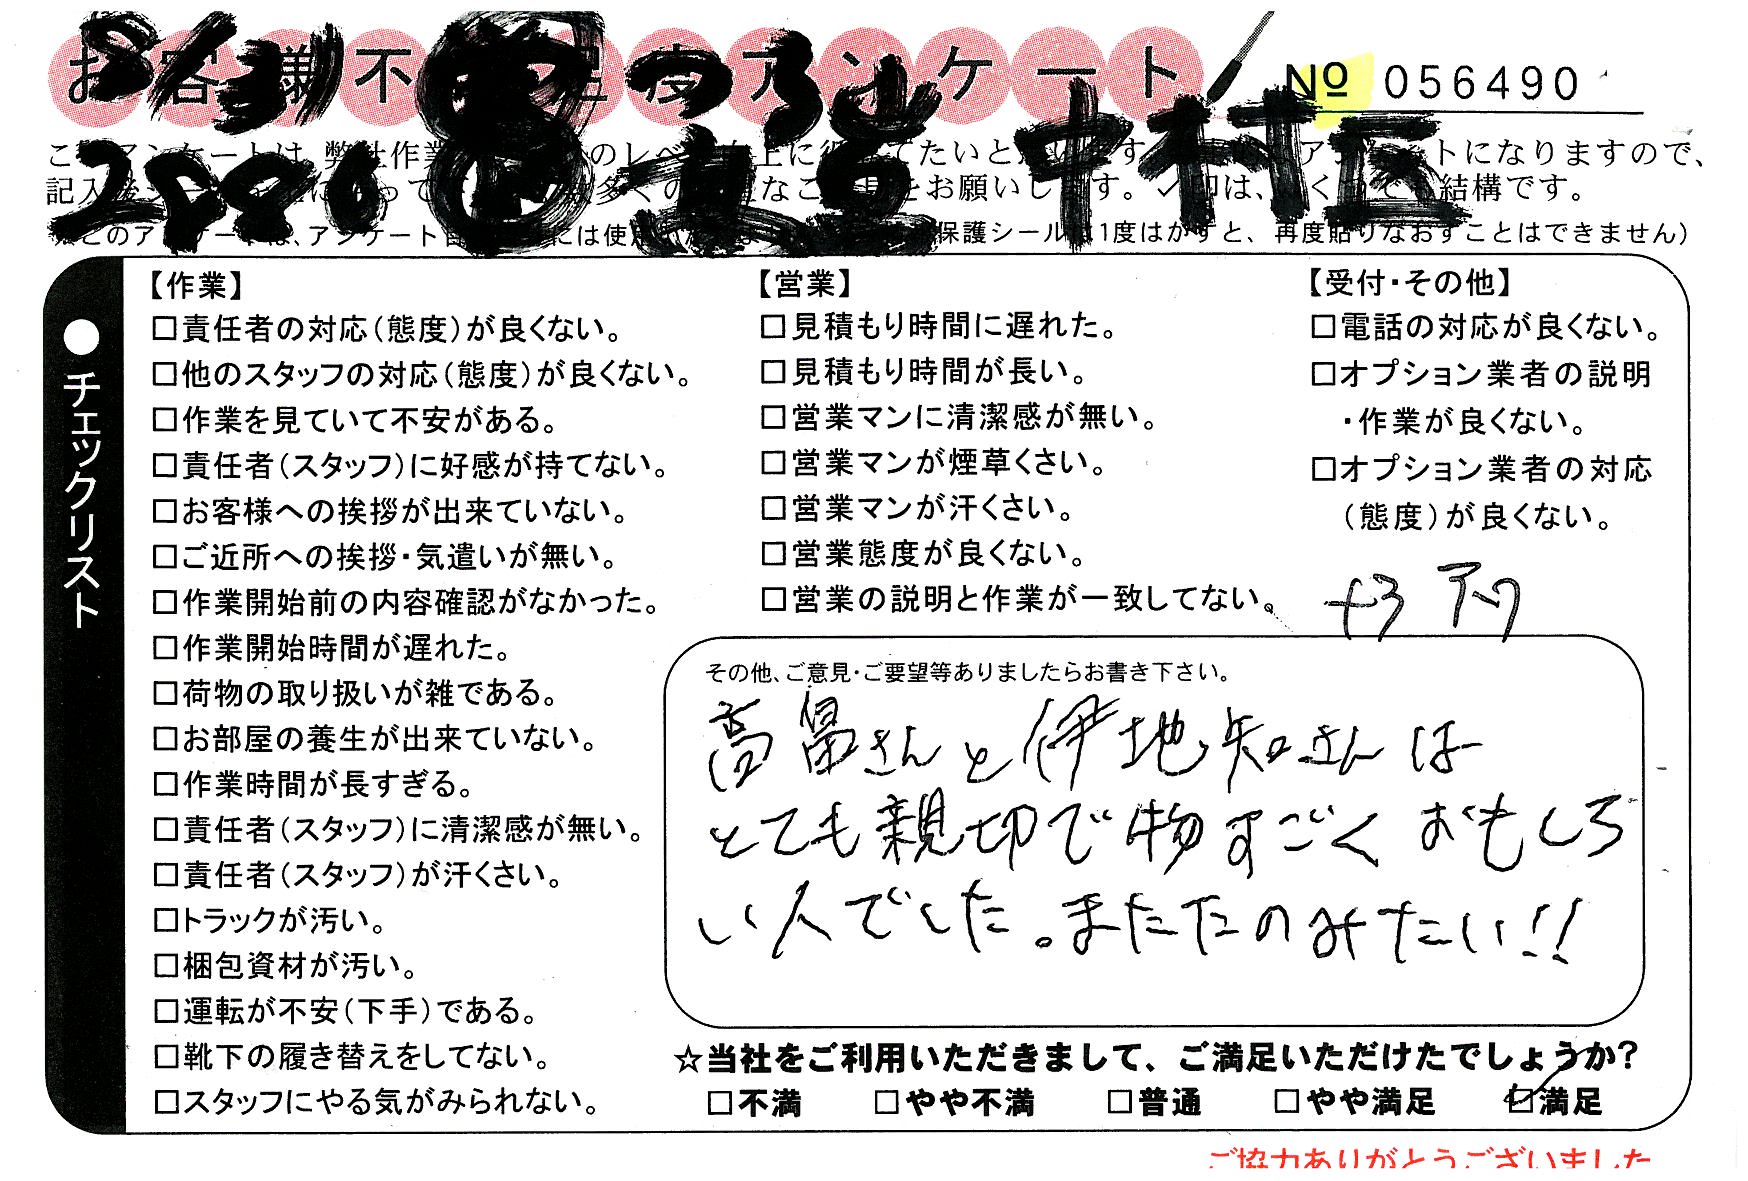 お客様不満足度アンケート
8/31
№ 056490
28861
中村区
記入後
お願いします。✓印は、いくつでも結構です。
保護シールは1度はがすと、再度貼りなおすことはできません)
●チェックリスト
【作業】
□責任者の対応(態度)が良くない。
□他のスタッフの対応(態度)が良くない。
□作業を見ていて不安がある。
□責任者(スタッフ)に好感が持てない。
□お客様への挨拶が出来ていない。
□ご近所への挨拶・気遣いが無い。
□作業開始前の内容確認がなかった。
□作業開始時間が遅れた。
□荷物の取り扱いが雑である。
□お部屋の養生が出来ていない。
□作業時間が長すぎる。
□責任者(スタッフ)に清潔感が無い。
□責任者(スタッフ)が汗くさい。
□トラックが汚い。
□梱包資材が汚い。
□運転が不安(下手)である。
□靴下の履き替えをしてない。
□スタッフにやる気がみられない。
【営業】
□見積もり時間に遅れた。
□見積もり時間が長い。
□営業マンに清潔感が無い。
□営業マンが煙草くさい。
□営業マンが汗くさい。
□営業態度が良くない。
□営業の説明と作業が一致してない。
【受付・その他】
□電話の対応が良くない。
□オプション業者の説明
・作業が良くない。
□オプション業者の対応
(態度)が良くない。
その他、ご意見・ご要望等ありましたらお書き下さい。
高畠さんと伊地知さんは
とても親切で物すごくおもしろ
い人でした。またたのみたい!!
☆当社をご利用いただきまして、ご満足いただけたでしょうか?
□不満 □やや不満 □普通 □やや満足 ☑満足
ご協力ありがとうございました